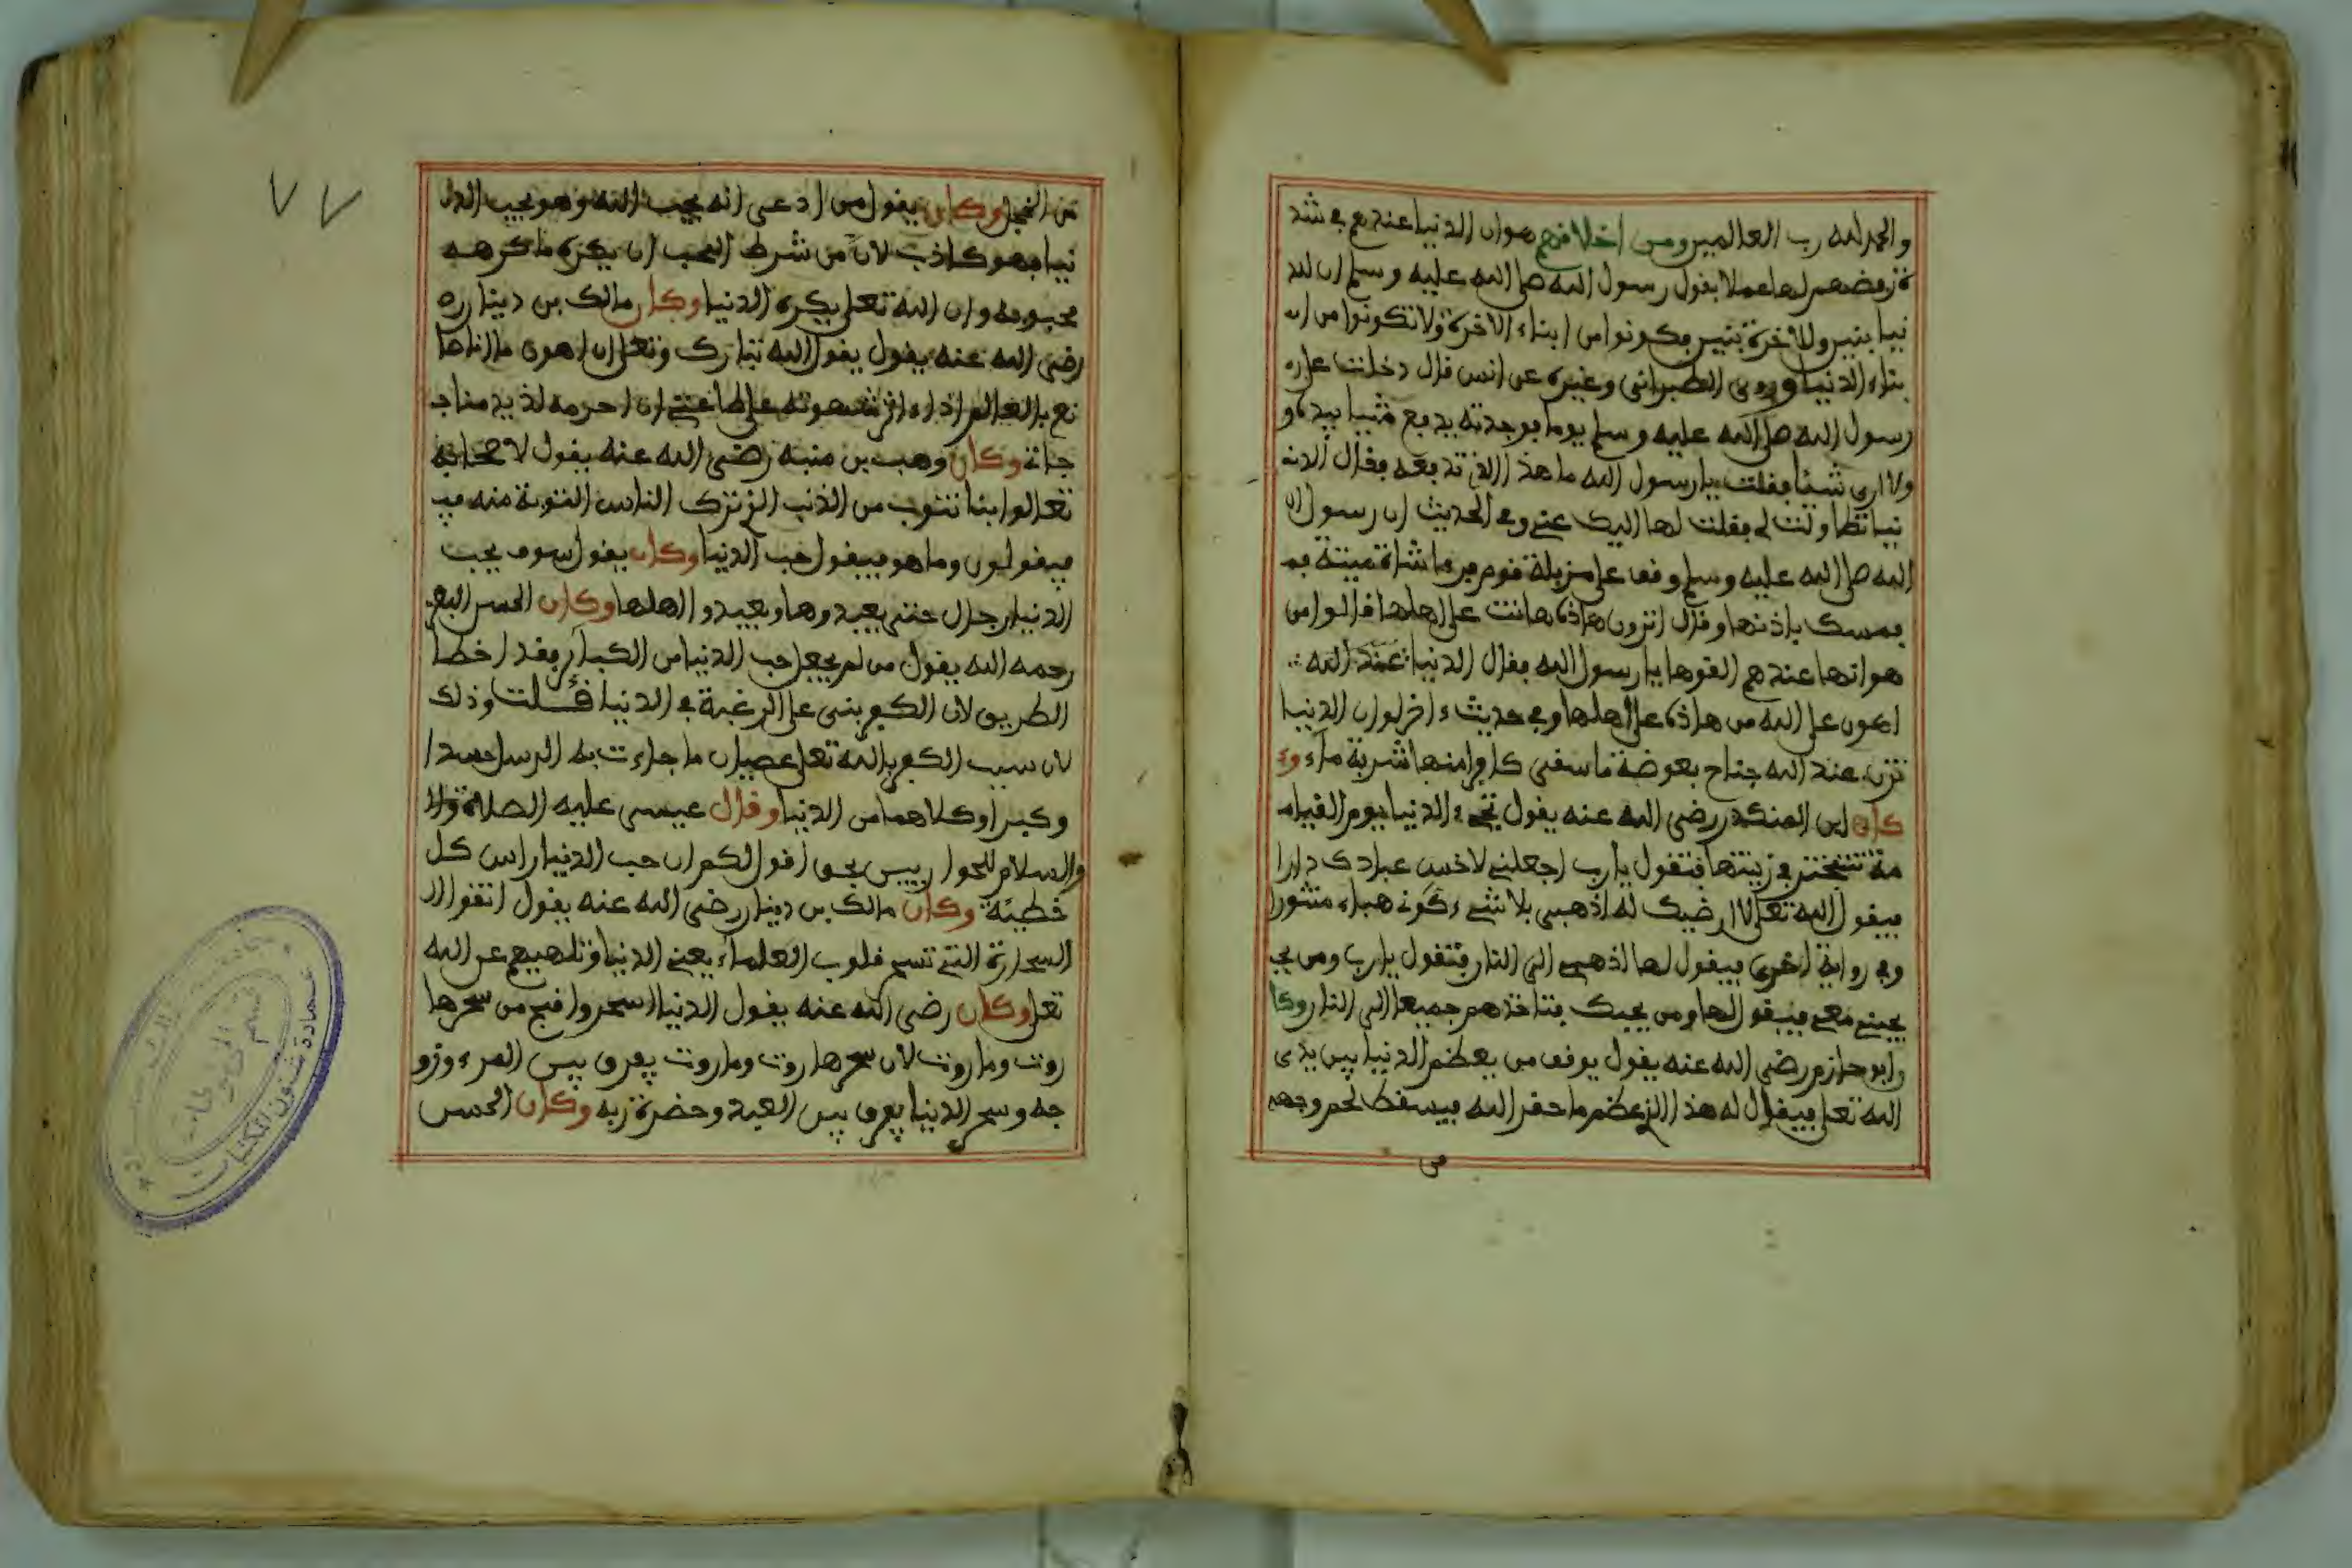 والحمد لله رب العالمين ومن اخلافهم هوان الدنيا عندهم في شد
ة رفضهم لها عملا بقول رسول الله صلى الله عليه وسلم ان للد
نيا بنين وللاخرة بنين فكونوا من ابناء الاخرة ولا تكونوا من ا
بناء الدنيا وروى الطبراني وغيره عن انس قال دخلت على ر
رسول الله صلى الله عليه وسلم يوما فوجدته يدفع شيئا بيده و
ولا ارى شيئا فقلت يا رسول الله ما هذا الذي تدفعه فقال الد
نيا تطاولت لي فقلت لها اليك عني وفي الحديث ان رسول ا
الله صلى الله عليه وسلم وقف على مزبلة قوم فيها شاة ميتة فم
فمسك باذنها وقال اترون هاذه هانت على اهلها قالوا من
هوانها عندهم القوها يا رسول الله فقال الدنيا عند الله
اهون على الله من هاذه على اهلها وفي حديث ءاخر لو ان الدنيا
تزن عند الله جناح بعوضة ما سقى كافرا منها شربة ماء و
كان ابن المنكدر رضي الله عنه يقول تجيء الدنيا يوم القيام
مة تتبختر في زينتها فتقول يا رب اجعلني لاخس عبادك دارا
فيقول الله تعلى لا ارضيك له اذهبي بلا شيء كوني هباء منثورا
وفي رواية اخرى فيقول لها اذهبي الى النار فتقول يا رب ومن يح
يحبني معي فيقول لها ومن يحبك فتاخذهم جميعا الى النار وكا
وابو حازم رضي الله عنه يقول يوقف من يعظم الدنيا بين يدي
الله تعلى فيقال له هذا الذي عظم ما حقر الله فيسقط لحم وجهه
من
٧٧
من الخجل وكان يقول من ادعى انه يحب الله وهو يحب الد
نيا فهو كاذب لان من شرط المحب ان يكره ما كرهه
محبوبه وان الله تعلى يكره الدنيا وكان مالك بن دينار ر
رضي الله عنه يقول يقول الله تبارك وتعلى ان اهون ما انا صا
نع بالعالم اذا ءاثر شهوته على طاعتي ان احرمه لذيذ مناجا
جاتي وكان وهب بن منبه رضي الله عنه يقول لاصحابه
تعالوا بنا نتوب من الذنب الذي ترك الناس التوبة منه في
فيقولون وما هو فيقول حب الدنيا وكان يقول سوف يحب
الدنيا رجال حتى يعبدوها ويعبدوا اهلها وكان الحسن البصر
رحمه الله يقول من لم يجعل حب الدنيا من الكبائر فقد اخطا
الطريق لان الكفر بني على الرغبة في الدنيا قلت وذلك
لان سبب الكفر بالله تعلى عصيان ما جاءت به الرسل حسدا
وكبرا وكلاهما من الدنيا وقال عيسى عليه الصلاة وال
والسلام للحواريين بحق اقول لكم ان حب الدنيا راس كل
خطيئة وكان مالك بن دينار رضي الله عنه يقول اتقوا ال
السحارة التي تسحر قلوب العلماء يعني الدنيا وتلهيهم عن الله
تعلى وكان رضي الله عنه يقول الدنيا اسحر واقبح من سحرها
روت وماروت لان سحر هاروت وماروت يفرق بين المرء وزو
جه وسحر الدنيا يفرق بين العبد وحضرة ربه وكان الحسن
عمادة شئون المكتبات
قسم المخطوطات